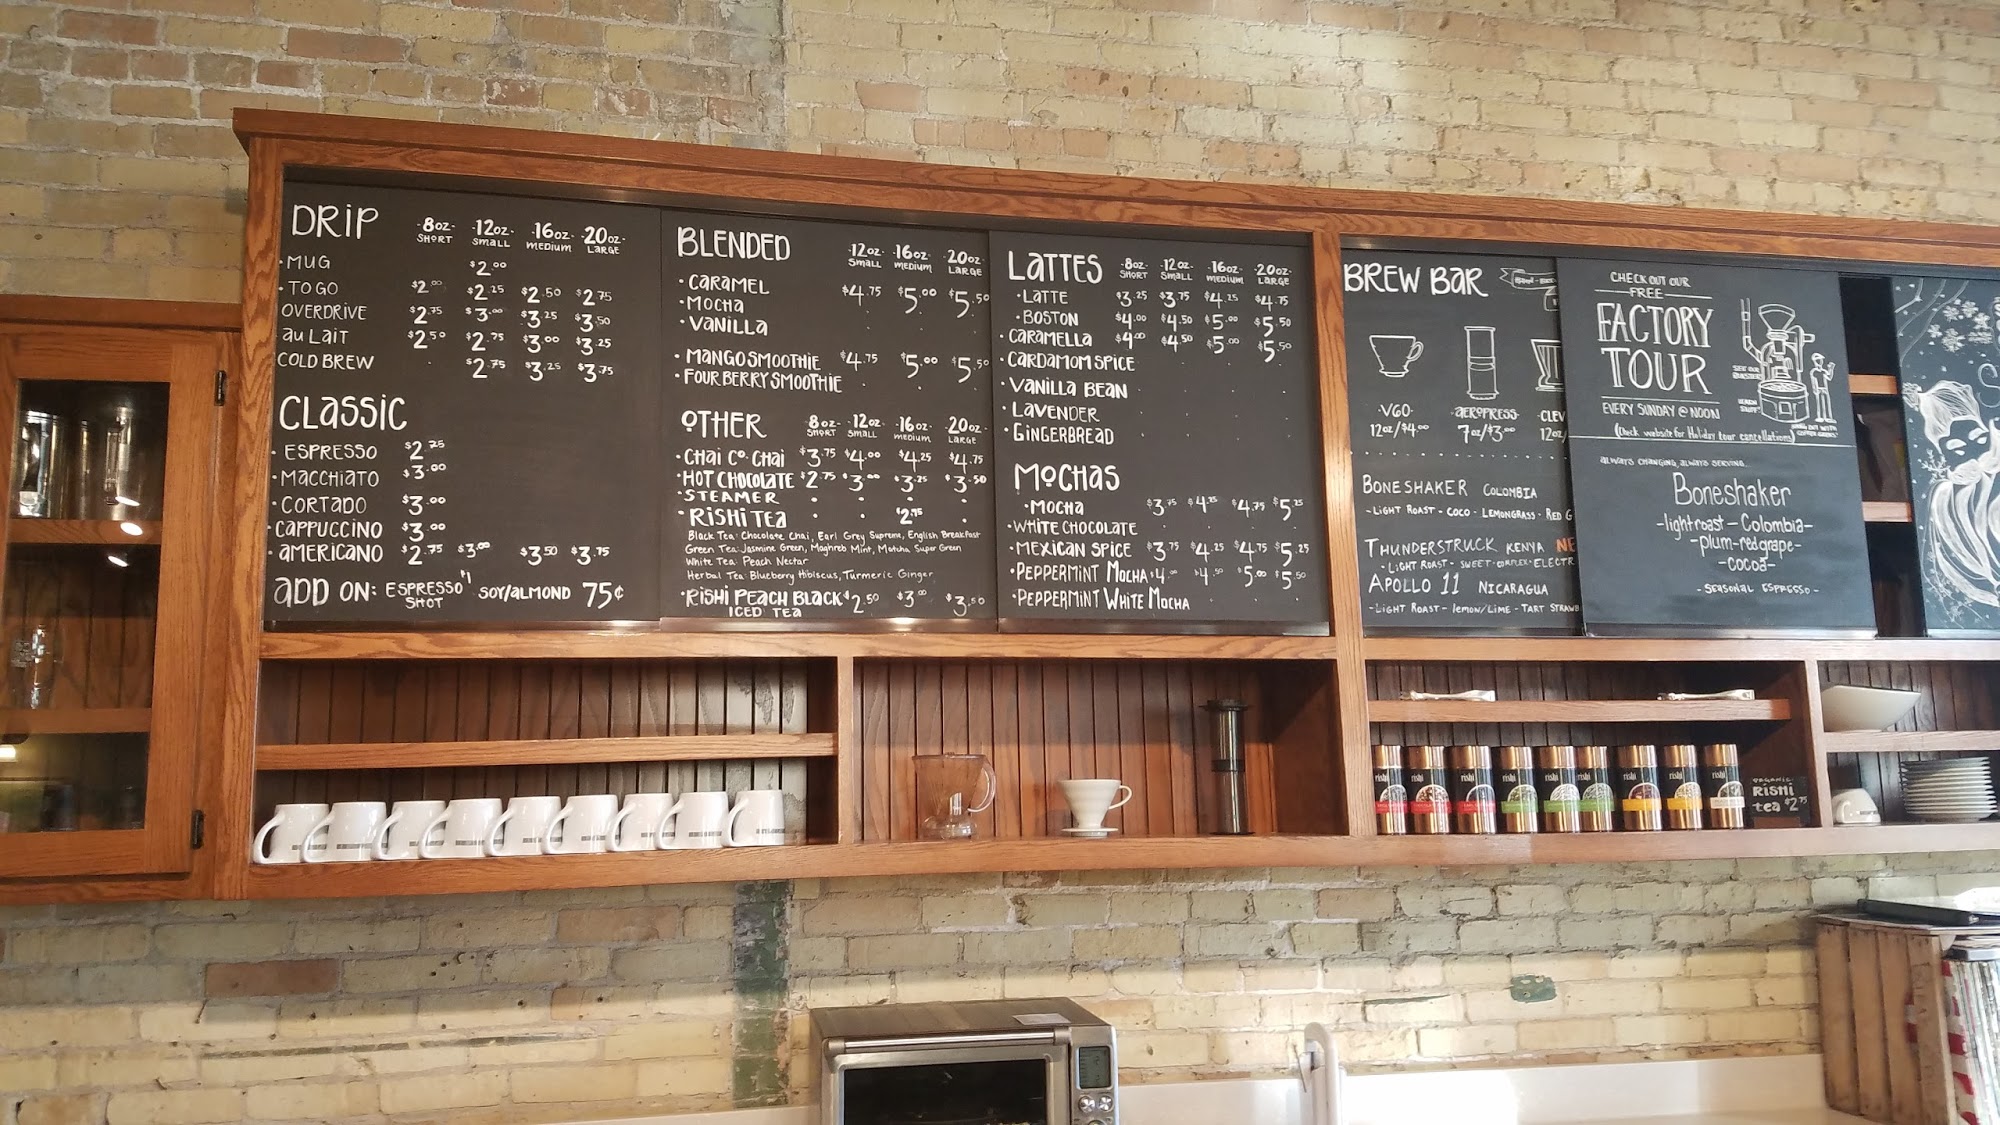 DRIP -8oz- -12oz- -16oz- -20oz-
SHORT SMALL MEDIUM LARGE
·MUG $2.00
·TO GO $2.00 $2.25 $2.50 $2.75
OVERDRIVE $2.75 $3.00 $3.25 $3.50
au LAIT $2.50 $2.75 $3.00 $3.25
COLD BREW · $2.75 $3.25 $3.75
CLASSIC
· ESPRESSO $2.25
·MACCHIATO $3.00
·CORTADO $3.00
·CAPPUCCINO $3.00
·AMERICANO $2.75 $3.00 $3.50 $3.75
ADD ON: ESPRESSO SHOT $1 SOY/ALMOND 75¢
BLENDED -12oz- -16oz- -20oz-
SMALL MEDIUM LARGE
·CARAMEL $4.75 $5.00 $5.50
·MOCHA
·VANILLA
·MANGO SMOOTHIE $4.75 $5.00 $5.50
·FOUR BERRY SMOOTHIE
OTHER 8oz- -12oz- -16oz- -20oz-
SHORT SMALL MEDIUM LARGE
·CHAI Co. CHAI $3.75 $4.00 $4.25 $4.75
·HOT CHOCOLATE $2.75 $3.00 $3.25 $3.50
·STEAMER
·RISHI TEA $2.75
Black Tea: Chocolate Chai, Earl Grey Supreme, English Breakfast
Green Tea: Jasmine Green, Maghreb Mint, Matcha Super Green
White Tea: Peach Nectar
Herbal Tea: Blueberry Hibiscus, Turmeric Ginger
·RISHI PEACH BLACK $2.50 $3.00 $3.50
ICED TEA
LATTES -8oz- -12oz- -16oz- -20oz-
SHORT SMALL MEDIUM LARGE
·LATTE $3.25 $3.75 $4.25 $4.75
·BOSTON $4.00 $4.50 $5.00 $5.50
·CARAMELLA $4.00 $4.50 $5.00 $5.50
·CARDAMOM SPICE
·VANILLA BEAN
·LAVENDER
·GINGERBREAD
MOCHAS
·MOCHA $3.75 $4.25 $4.75 $5.25
·WHITE CHOCOLATE
·MEXICAN SPICE $3.75 $4.25 $4.75 $5.25
·PEPPERMINT MOCHA $4.00 $4.50 $5.00 $5.50
·PEPPERMINT WHITE MOCHA
BREW BAR
·V60· ·AEROPRESS· ·CLEV
12oz/$4.00 7oz/$3.00 12oz/
BONESHAKER COLOMBIA
-LIGHT ROAST - COCO - LEMONGRASS - RED G
THUNDERSTRUCK KENYA NE
-LIGHT ROAST - SWEET-COMPLEX-ELECTR
APOLLO 11 NICARAGUA
-LIGHT ROAST - LEMON/LIME - TART STRAWB
CHECK OUT OUR
FREE
FACTORY
TOUR
EVERY SUNDAY @ NOON
(Check website for Holiday tour cancellations)
SEE OUR
ROASTER
LEARN
STUFF
ALWAYS CHANGING, ALWAYS SERVING...
Boneshaker
-light roast - Colombia-
-plum-red grape-
-cocoa-
-SEASONAL ESPRESSO-
rishi rishi rishi rishi rishi rishi rishi rishi rishi
ORGANIC
RISHI
tea $2.75